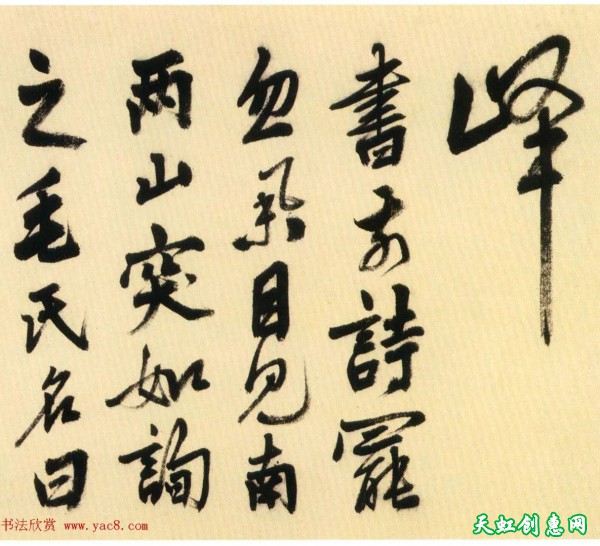 峰
書前詩罷
忽舉目見南
兩山突如詢
之毛氏名曰
书法欣赏 www.yac8.com
天虹创惠网